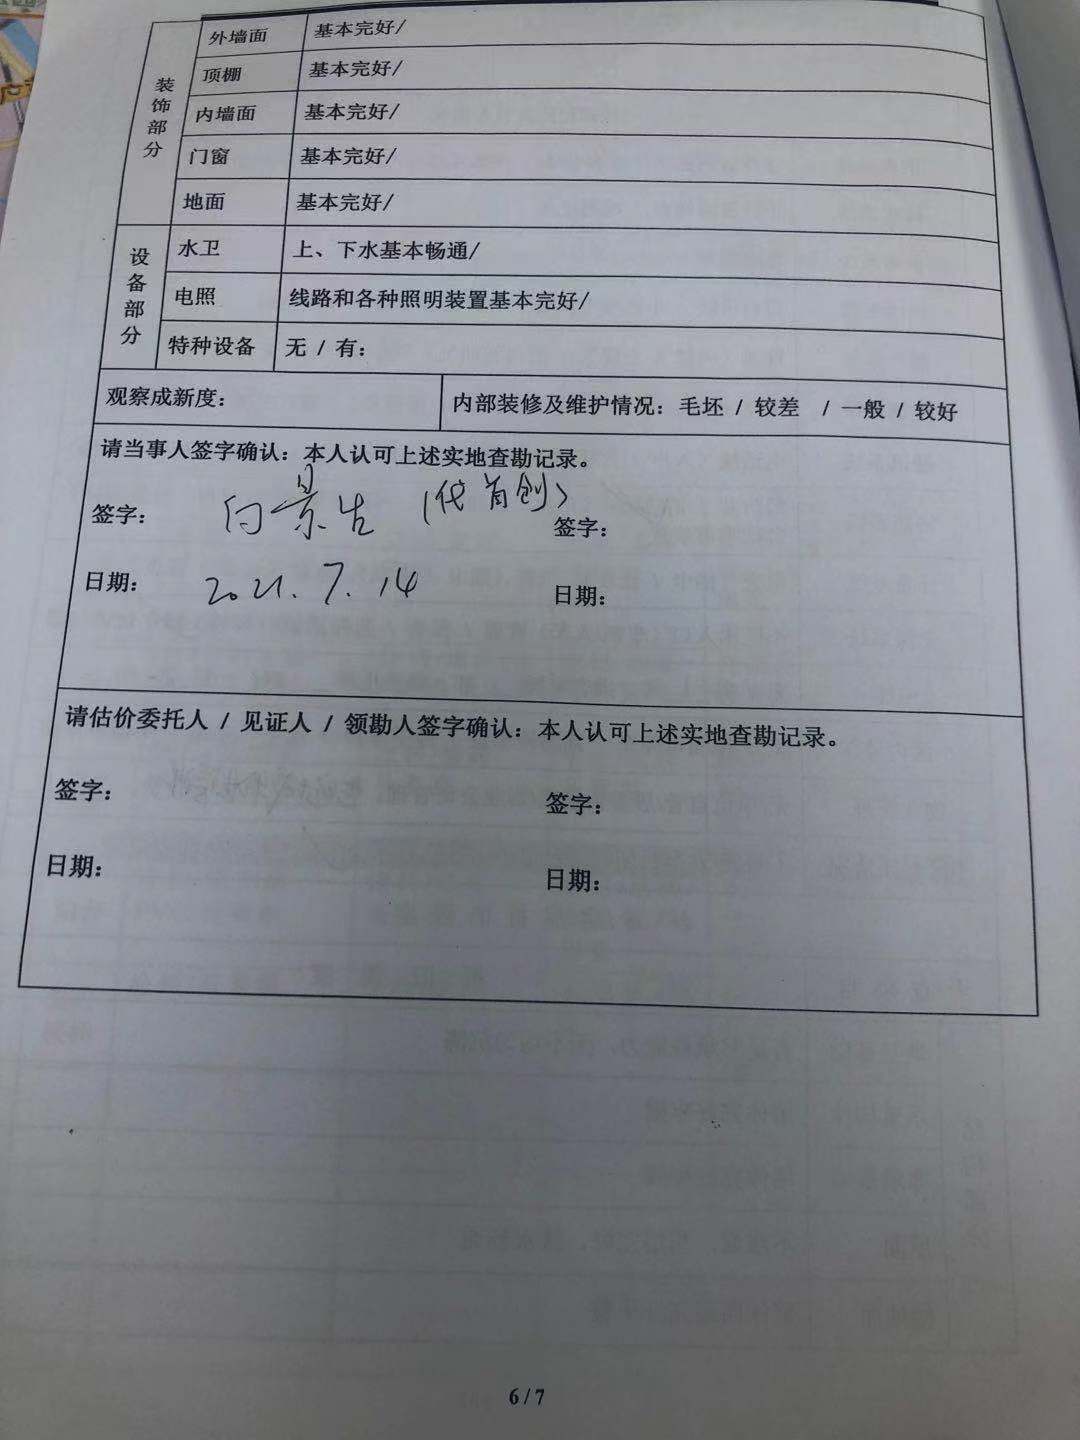 装饰部分
外墙面 基本完好/
顶棚 基本完好/
内墙面 基本完好/
门窗 基本完好/
地面 基本完好/
设备部分
水卫 上、下水基本畅通/
电照 线路和各种照明装置基本完好/
特种设备 无 / 有：
观察成新度： 内部装修及维护情况：毛坯 / 较差 / 一般 / 较好
请当事人签字确认：本人认可上述实地查勘记录。
签字： 景 签字：
日期： 2021.7.14 日期：
请估价委托人 / 见证人 / 领勘人签字确认：本人认可上述实地查勘记录。
签字： 签字：
日期： 日期：
6 / 7